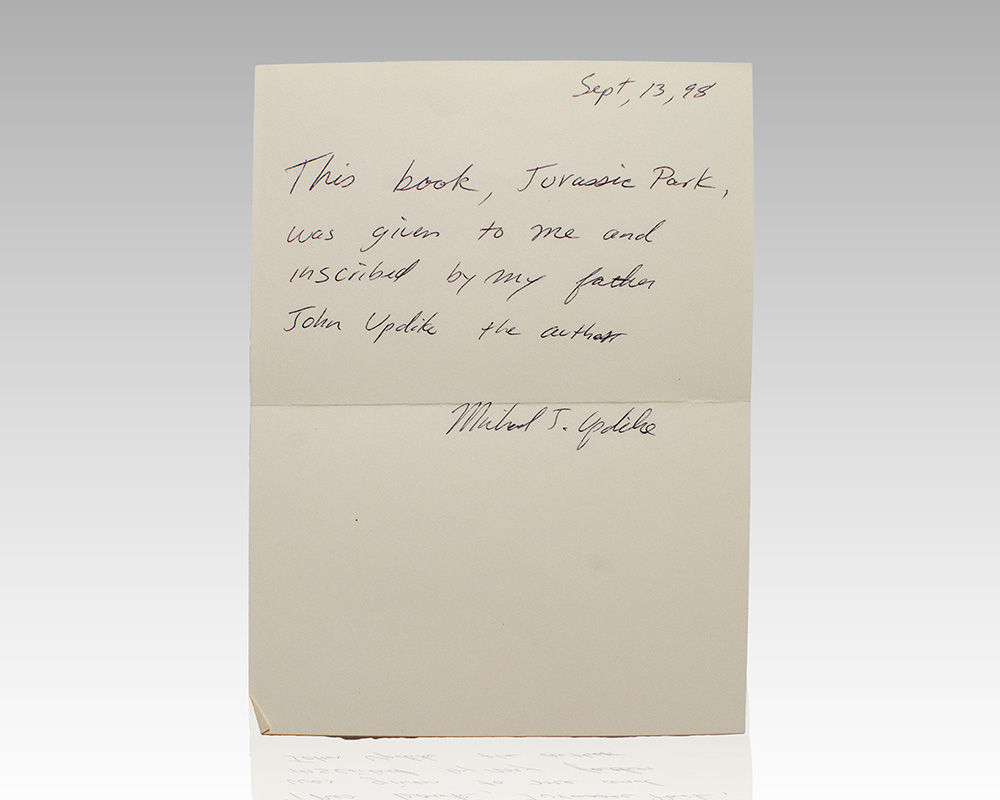 Sept, 13, 98
This book, Jurassic Park,
was given to me and
inscribed by my father
John Updike the author
Michael J. Updike